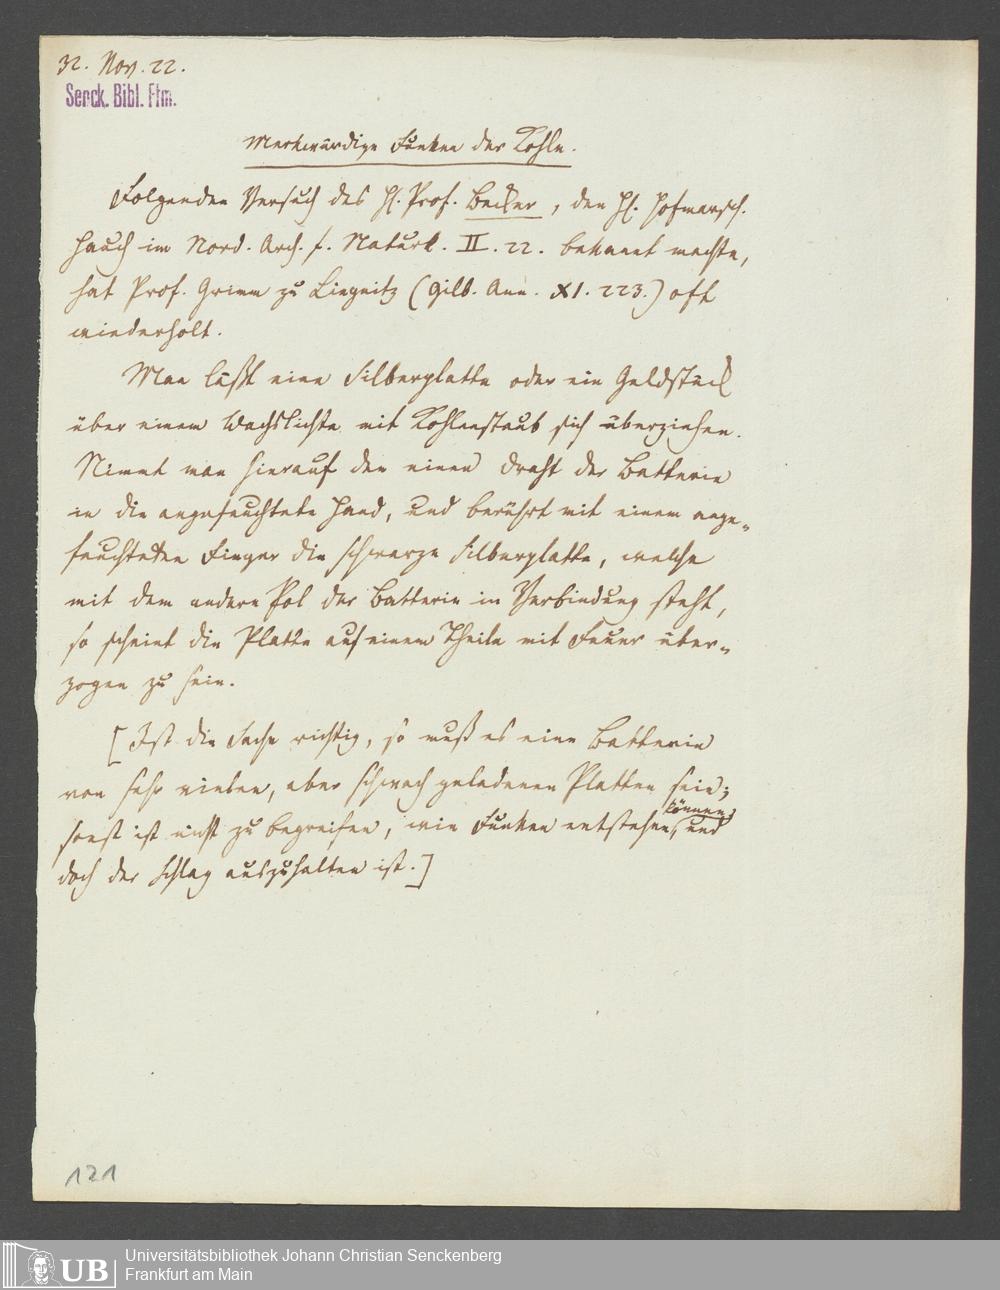 32. Nov. 22.
Senck. Bibl. Ffm.
Merkwürdige Funken der Kohle.
Folgenden Versuch des H. Prof. Becker, den H. Hofmarsch.
Hauch im Nord. Arch. f. Naturk. II. 22. bekannt machte,
hat Prof. Grimm zu Liegnitz (Gilb. Ann. XI. 223.) oft
wiederholt.
Man läßt eine Silberplatte oder ein Geldstück
über einem Wachslichte mit Kohlenstaub sich überziehen.
Nimmt man hierauf den einen Draht der Batterie
in die angefeuchtete Hand, und berührt mit einem ange-
feuchteten Finger die schwarze Silberplatte, welche
mit dem andern Pol der Batterie in Verbindung steht,
so scheint die Platte auf einem Theile mit Feuer über-
zogen zu sein.
[Ist die Sache richtig, so muß es eine Batterie
von sehr vielen, aber schwach geladenen Platten sein;
sonst ist nicht zu begreifen, wie Funken entstehen können, und
doch der Schlag auszuhalten ist.]
121
UB
Universitätsbibliothek Johann Christian Senckenberg
Frankfurt am Main